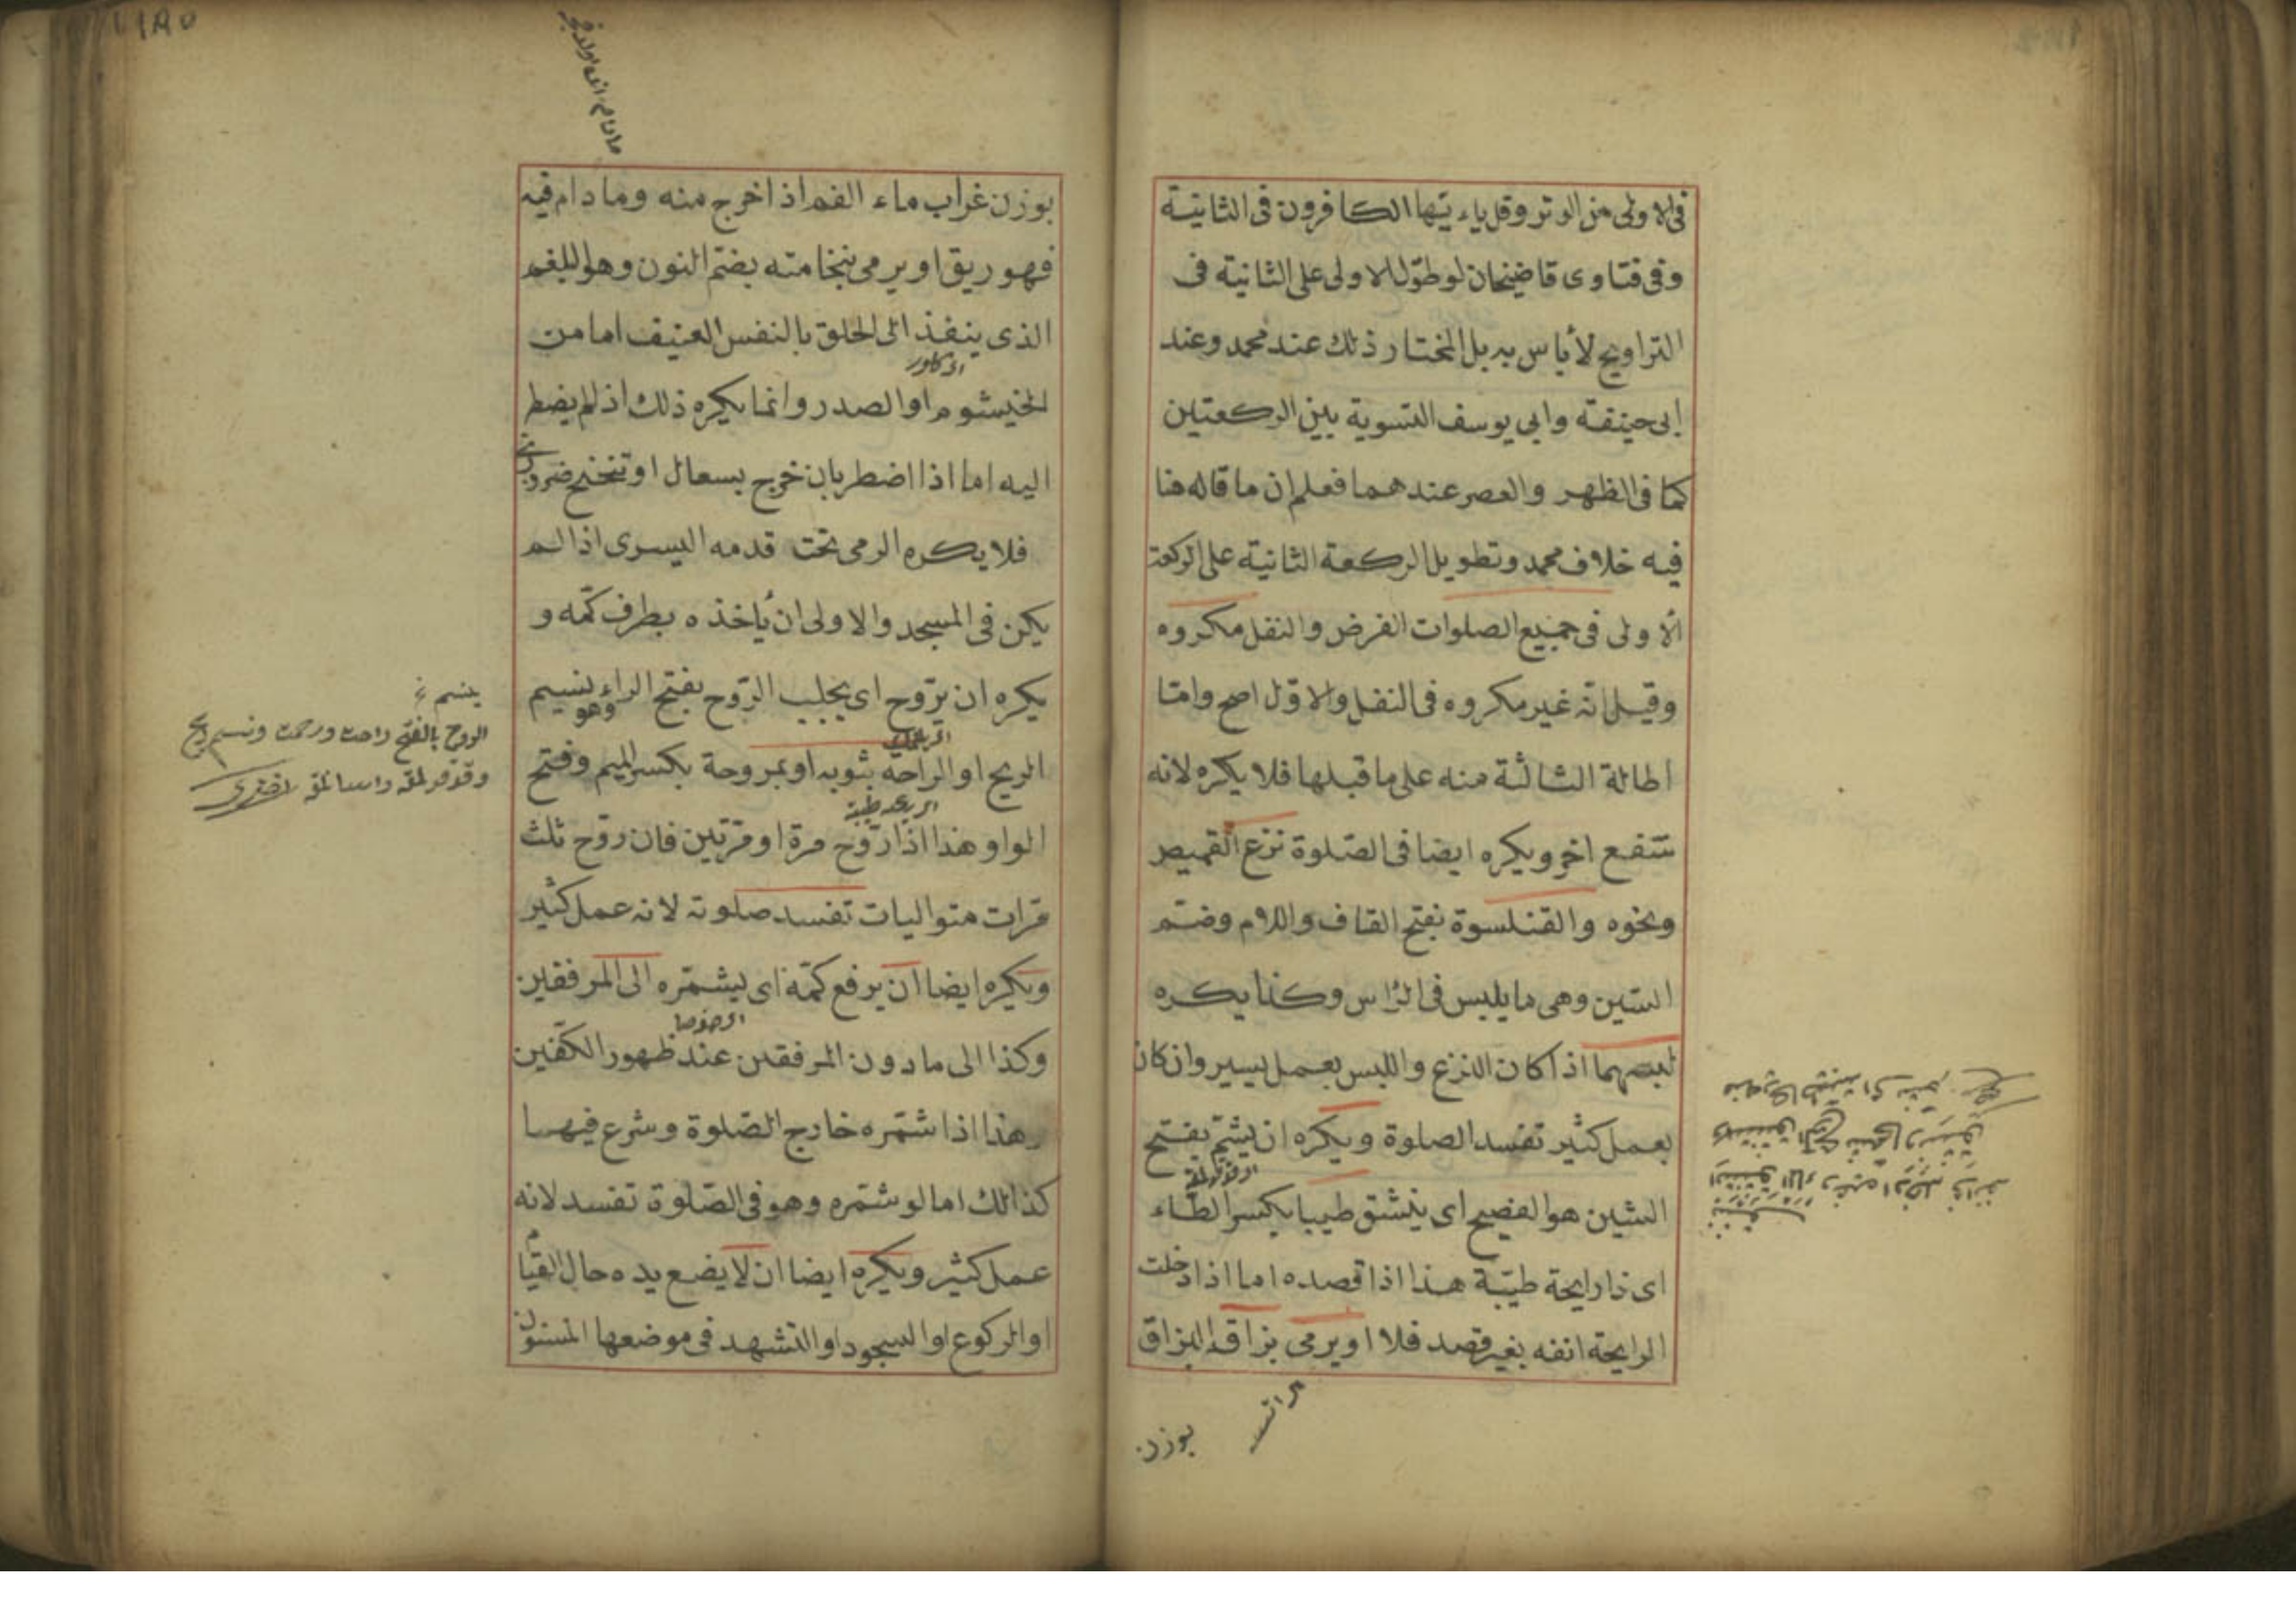 فى الاولى من الوتر وقل ياءيتها الكافرون فى الثانية
وفى فتاوى قاضيخان لو طوّل الاولى على الثانية فى
التراويح لأباس به بل المختار ذلك عند محمد وعند
ابى حنيفة وابى يوسف التسوية بين الركعتين
كما فى الظهر والعصر عندهما فعلم ان ما قاله هنا
فيه خلاف محمد وتطويل الركعة الثانية على الركعة
الأولى فى جميع الصلوات الفرض والنفل مكروه
وقيل انه غير مكروه فى النفل والاوّل اصح وامّا
اطالة الثالثة منه على ما قبلها فلا يكره لانه
شفع اخر ويكره ايضا فى الصّلوة نزع القميص
ونحوه والقنلسوة بفتح القاف واللام وضمّ
السّين وهى ما يلبس فى الرّأس وكذا يكره
لبسهما اذا كان النزع واللبس بعمل يسير وان كان
بعمل كثير تفسد الصلوة ويكره ان يشمّ بفتح
الشين هو الفصيح اى ينشق طيبا بكسر الطاء
اى ذا رايحة طيّبة هذا اذا قصده اما اذا دخلت
الرايحة انفه بغير قصد فلا او يرمى بزاقه البزاق
بوزن
بوزن غراب ماء الفم اذا خرج منه وما دام فيه
فهو ريق او يرمى نخامته بضمّ النون وهو البلغم
الذى ينفذ الى الحلق بالنفس العنيف اما من
الخيشوم او الصدر وانما يكره ذلك اذا لم يضطر
اليه اما اذا اضطر بان خرج بسعال او تنحنح ضرورى
فلا يكره الرمى تحت قدمه اليسرى اذا لم
يكن فى المسجد والاولى ان يأخذه بطرف كمّه و
يكره ان يروّح اى يجلب الرّوح بفتح الراء وهو نسيم
الريح او الراحة بثوبه او بمروحة بكسر الميم وفتح
الواو هذا اذا روّح مرة او مرّتين فان روّح ثلث
مرّات متواليات تفسد صلوته لانه عمل كثير
ويكره ايضا ان يرفع كمّه اى يشمّره الى المرفقين
وكذا الى ما دون المرفقين عند ظهور الكفّين
هذا اذا شمّره خارج الصّلوة وشرع فيها
كذالك اما لو شمّره وهو فى الصّلوة تفسد لانه
عمل كثير ويكره ايضا ان لا يضع يده حال القيام
او الركوع او السجود او التشهد فى موضعها المسنون
الروح بالفتح راحت ورحمت ونسيم ريح